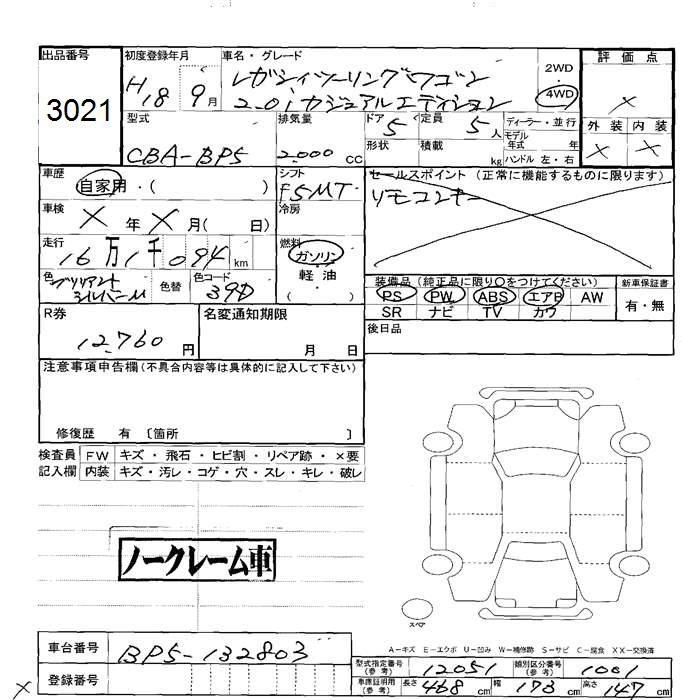 出品番号
3021
初度登録年月
H18 9月
車名・グレード
レガシィツーリングワゴン
2.0iカジュアルエディション
2WD
・
4WD
評価点
×
外装 内装
× ×
型式
CBA-BP5
排気量
2000 cc
ドア
5
定員
5人
形状
積載
kg
ディーラー・並行
モデル年式 年
ハンドル 左・右
車歴
自家用・( )
シフト
F5MT
セールスポイント (正常に機能するものに限ります)
リモコンキー
車検
× 年 × 月( 日)
冷房
走行
16万1千094 km
燃料
ガソリン
軽油
( )
色
ブリリアント
シルバーM
色替
色コード
39D
装備品 (純正品に限り○をつけてください)
PS PW ABS エアB AW
SR ナビ TV カワ
新車保証書
有・無
R券
12,760 円
名変通知期限
月 日
後日品
注意事項申告欄(不具合内容等は具体的に記入して下さい)
修復歴 有 〔箇所 〕
検査員記入欄
FW キズ・飛石・ヒビ割・リペア跡・×要
内装 キズ・汚レ・コゲ・穴・スレ・キレ・破レ
ノークレーム車
スペア
A-キズ E-エクボ U-凹み W-補修跡 S-サビ C-腐食 XX-交換済
車台番号
BP5-132803
登録番号
×
型式指定番号(参考)
12051
類別区分番号(参考)
1001
車庫証明用(参考)
長さ 468 cm 幅 173 cm 高さ 147 cm